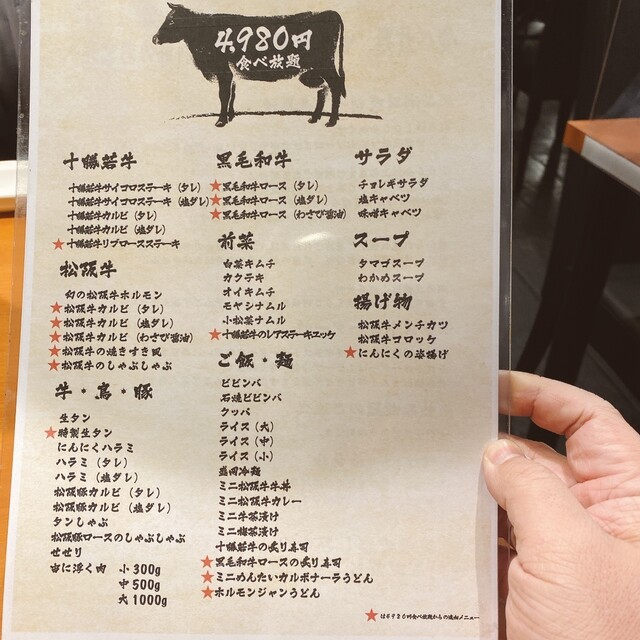 4,980円
食べ放題
十勝若牛
十勝若牛サイコロステーキ（タレ）
十勝若牛サイコロステーキ（塩ダレ）
十勝若牛カルビ（タレ）
十勝若牛カルビ（塩ダレ）
★十勝若牛リブロースステーキ
松阪牛
幻の松阪牛ホルモン
★松阪牛カルビ（タレ）
★松阪牛カルビ（塩ダレ）
★松阪牛カルビ（わさび醤油）
★松阪牛の焼きすき風
★松阪牛のしゃぶしゃぶ
牛・鳥・豚
生タン
★特製生タン
にんにくハラミ
ハラミ（タレ）
ハラミ（塩ダレ）
松阪豚カルビ（タレ）
松阪豚カルビ（塩ダレ）
タンしゃぶ
松阪豚ロースのしゃぶしゃぶ
せせり
宙に浮く肉 小 300g
中 500g
大 1000g
黒毛和牛
★黒毛和牛ロース（タレ）
★黒毛和牛ロース（塩ダレ）
★黒毛和牛ロース（わさび醤油）
前菜
白菜キムチ
カクテキ
オイキムチ
モヤシナムル
小松菜ナムル
★十勝若牛のレアステーキユッケ
ご飯・麺
ビビンバ
石焼ビビンバ
クッパ
ライス（大）
ライス（中）
ライス（小）
盛岡冷麺
ミニ松阪牛牛丼
ミニ松阪牛カレー
ミニ牛茶漬け
ミニ梅茶漬け
十勝若牛の炙り寿司
★黒毛和牛ロースの炙り寿司
★ミニめんたいカルボナーラうどん
★ホルモンジャンうどん
サラダ
チョレギサラダ
塩キャベツ
味噌キャベツ
スープ
タマゴスープ
わかめスープ
揚げ物
松阪牛メンチカツ
松阪牛コロッケ
★にんにくの姿揚げ
★は4980円食べ放題からの追加メニュー